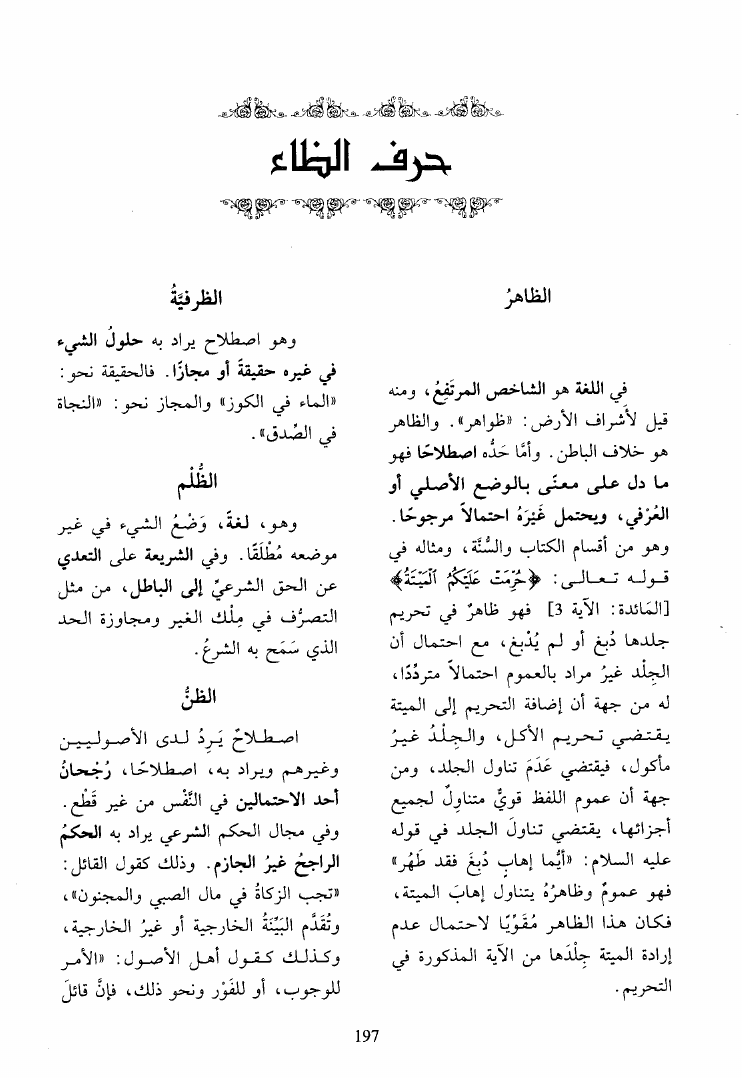 حرف الظاء
الظاهرُ
في اللغة هو الشاخص المرتَفِعُ، ومنه
قيل لأشراف الأرض: «ظواهر». والظاهر
هو خلاف الباطن. وأمَّا حَدُّه اصطلاحًا فهو
ما دل على معنًى بالوضع الأصلي أو
العُرْفي، ويحتمل غَيْرَهُ احتمالاً مرجوحًا.
وهو من أقسام الكتاب والسُّنَّة، ومثاله في
قوله تعالى: ﴿حُرِّمَتْ عَلَيْكُمُ ٱلْمَيْتَةُ﴾
[المَائدة: الآية 3] فهو ظاهرٌ في تحريم
جلدها دُبغ أو لم يُدْبغ، مع احتمال أن
الجِلْد غيرُ مراد بالعموم احتمالاً متردّدًا،
له من جهة أن إضافة التحريم إلى الميتة
يقتضي تحريم الأكل، والجِلْدُ غيرُ
مأكول، فيقتضي عَدَمَ تناول الجلد، ومن
جهة أن عموم اللفظ قويٌّ متناوِلٌ لجميع
أجزائها، يقتضي تناولَ الجلد في قوله
عليه السلام: «أيُّما إهابٍ دُبغَ فقد طَهُر»
فهو عمومٌ وظاهرُهُ يتناول إهابَ الميتة،
فكان هذا الظاهر مُقَوِّيًا لاحتمال عدم
إرادة الميتة جِلْدَها من الآية المذكورة في
التحريم.
الظرفيَّةُ
وهو اصطلاح يراد به حلولُ الشيء
في غيره حقيقةً أو مجازًا. فالحقيقة نحو:
«الماء في الكوز» والمجاز نحو: «النجاة
في الصِّدق».
الظُّلْم
وهو، لغةً، وَضْعُ الشيء في غير
موضعه مُطْلَقًا. وفي الشريعة على التعدي
عن الحق الشرعيِّ إلى الباطل، من مثل
التصرُّف في مِلْك الغير ومجاوزة الحد
الذي سَمَح به الشرعُ.
الظنُّ
اصطلاحٌ يَرِدُ لدى الأصوليين
وغيرهم ويراد به، اصطلاحًا، رُجْحانُ
أحد الاحتمالين في النَّفْس من غير قَطْع.
وفي مجال الحكم الشرعي يراد به الحكمُ
الراجحُ غيرُ الجازم. وذلك كقول القائل:
«تجب الزكاةُ في مال الصبي والمجنون»،
وتُقَدَّم البَيِّنَةُ الخارجية أو غيرُ الخارجية،
وكذلك كقول أهل الأصول: «الأمر
للوجوب، أو للفَوْر ونحو ذلك، فإنَّ قائلَ
197